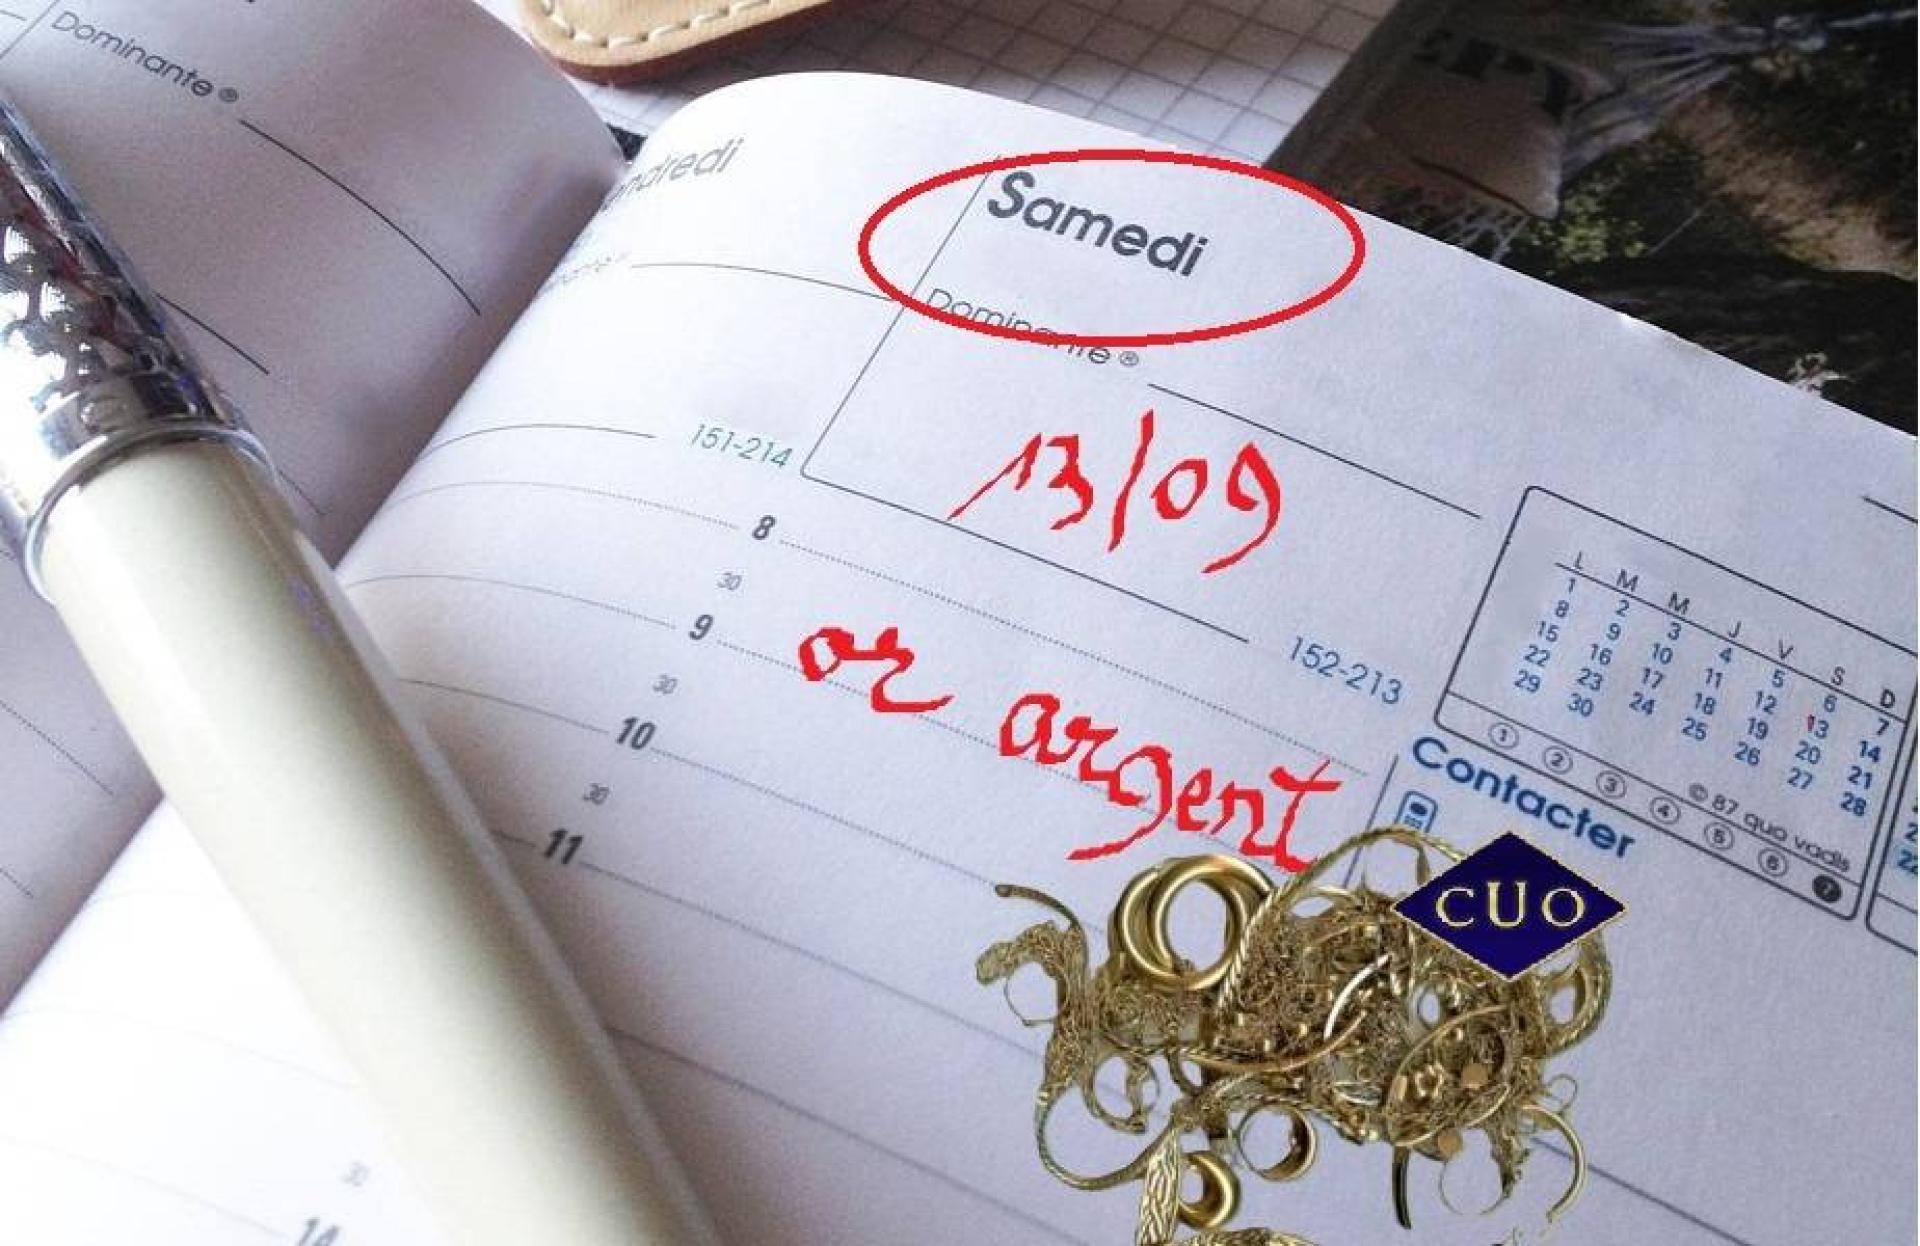 Dominante ®
Samedi
Dominante ®
13/09
151-214
8
30
9
or argent
152-213
30
10
30
11
L M M J V S D
1 2 3 4 5 6 7
8 9 10 11 12 13 14
15 16 17 18 19 20 21
22 23 24 25 26 27 28
29 30
1 2 3 4 5 6 7
© 87 quo vadis
Contacter
CUO
30